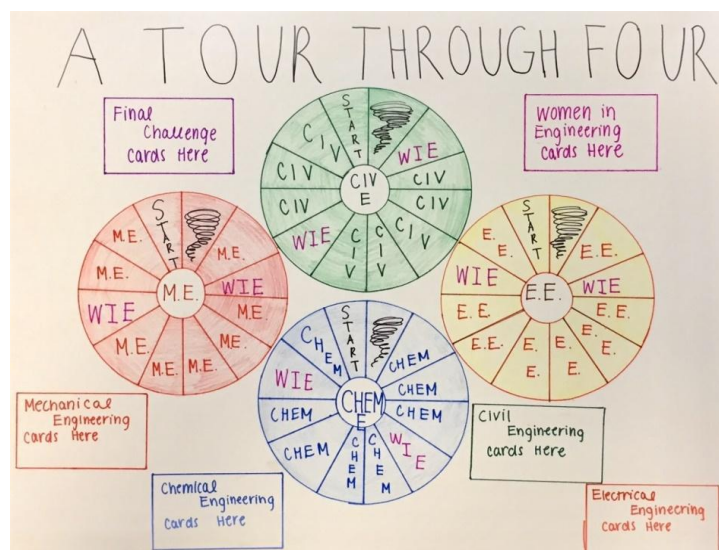 A TOUR THROUGH FOUR
Final
Challenge
Cards Here
Women in
Engineering
Cards Here
START
WIE
CIV
CIV
CIV
CIV
CIV
WIE
CIV
CIV
CIV
CIV
E
START
M.E.
WIE
M.E.
M.E.
M.E.
M.E.
M.E.
WIE
M.E.
M.E.
M.E.
START
E.E.
WIE
E.E.
E.E.
E.E.
E.E.
E.E.
E.E.
WIE
E.E.
E.E.
START
CHEM
CHEM
CHEM
WIE
CHEM
CHEM
CHEM
CHEM
WIE
CHEM
CHEM
E
Mechanical
Engineering
Cards Here
Civil
Engineering
Cards Here
Chemical
Engineering
Cards Here
Electrical
Engineering
Cards Here